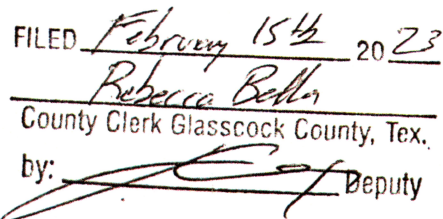 FILED February 15th 2023
Rebecca Bella
County Clerk Glasscock County, Tex.
by: Deputy